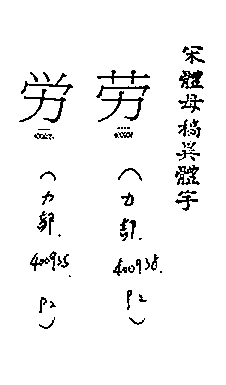 宋體母稿異體字
劳
(力部.
400938.
P2)
労
(力部.
400935
P2)